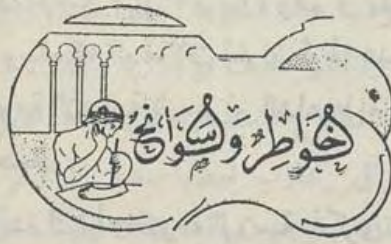 خَوَاطِرُ وَسَوَانِحُ